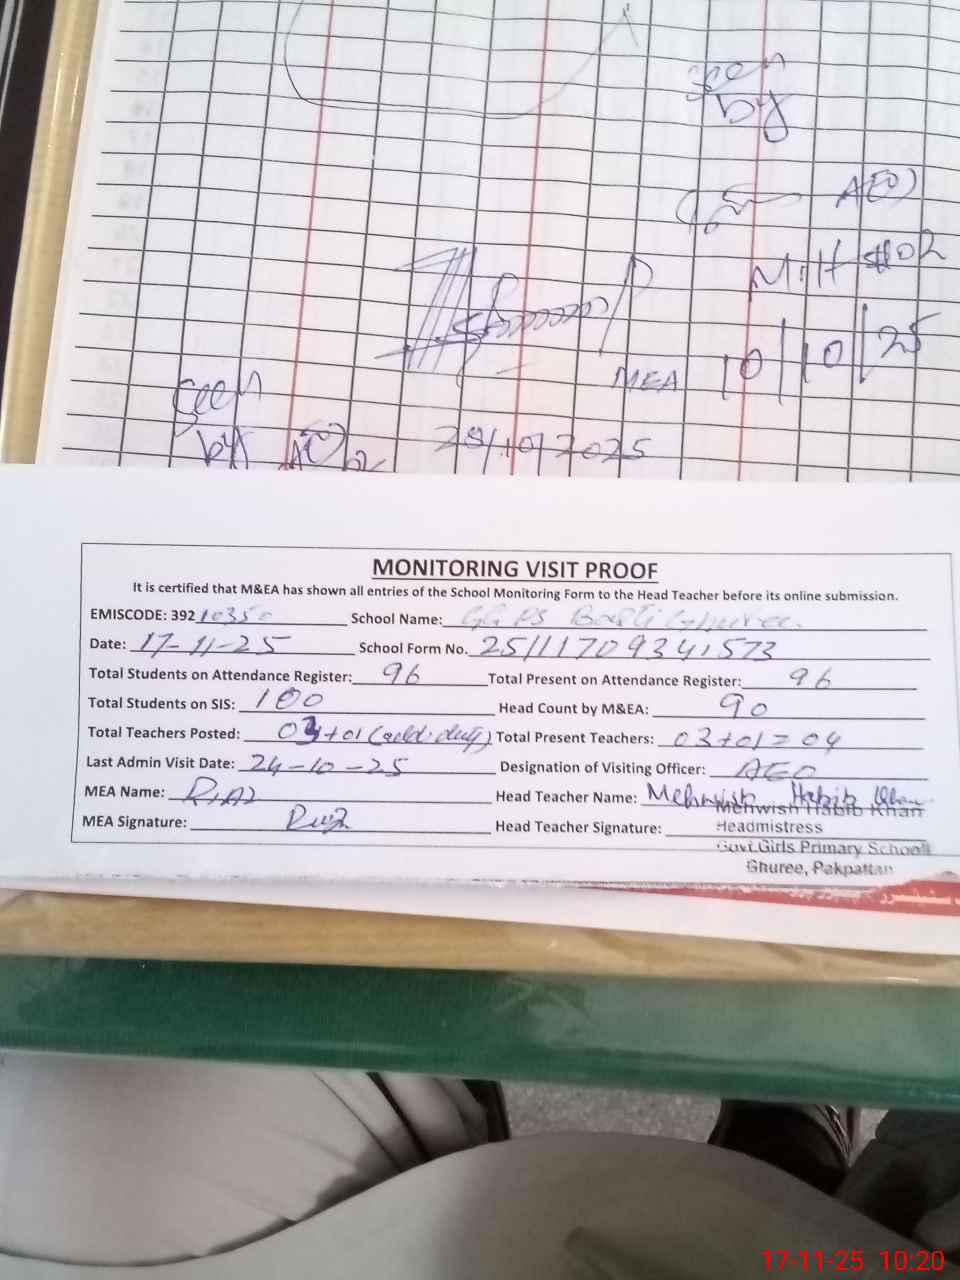 seen
by
AEO)
MEA
10/10/25
seen
by AEO
MONITORING VISIT PROOF
It is certified that M&EA has shown all entries of the School Monitoring Form to the Head Teacher before its online submission.
EMISCODE: 392 10350 School Name: GGPS Basti Ghuree.
Date: 17-11-25 School Form No. 251117093341573
Total Students on Attendance Register: 96 Total Present on Attendance Register: 96
Total Students on SIS: 100 Head Count by M&EA: 90
Total Teachers Posted: 03+01 (add: duty) Total Present Teachers: 03+01=04
Last Admin Visit Date: 24-10-25 Designation of Visiting Officer: AEO
MEA Name: Riaz Head Teacher Name: Mehwish Habib Khan
Mehwish Habib Khan
MEA Signature: Riaz Head Teacher Signature: Headmistress
Govt.Girls Primary School
Ghuree, Pakpattan
17-11-25 10:20